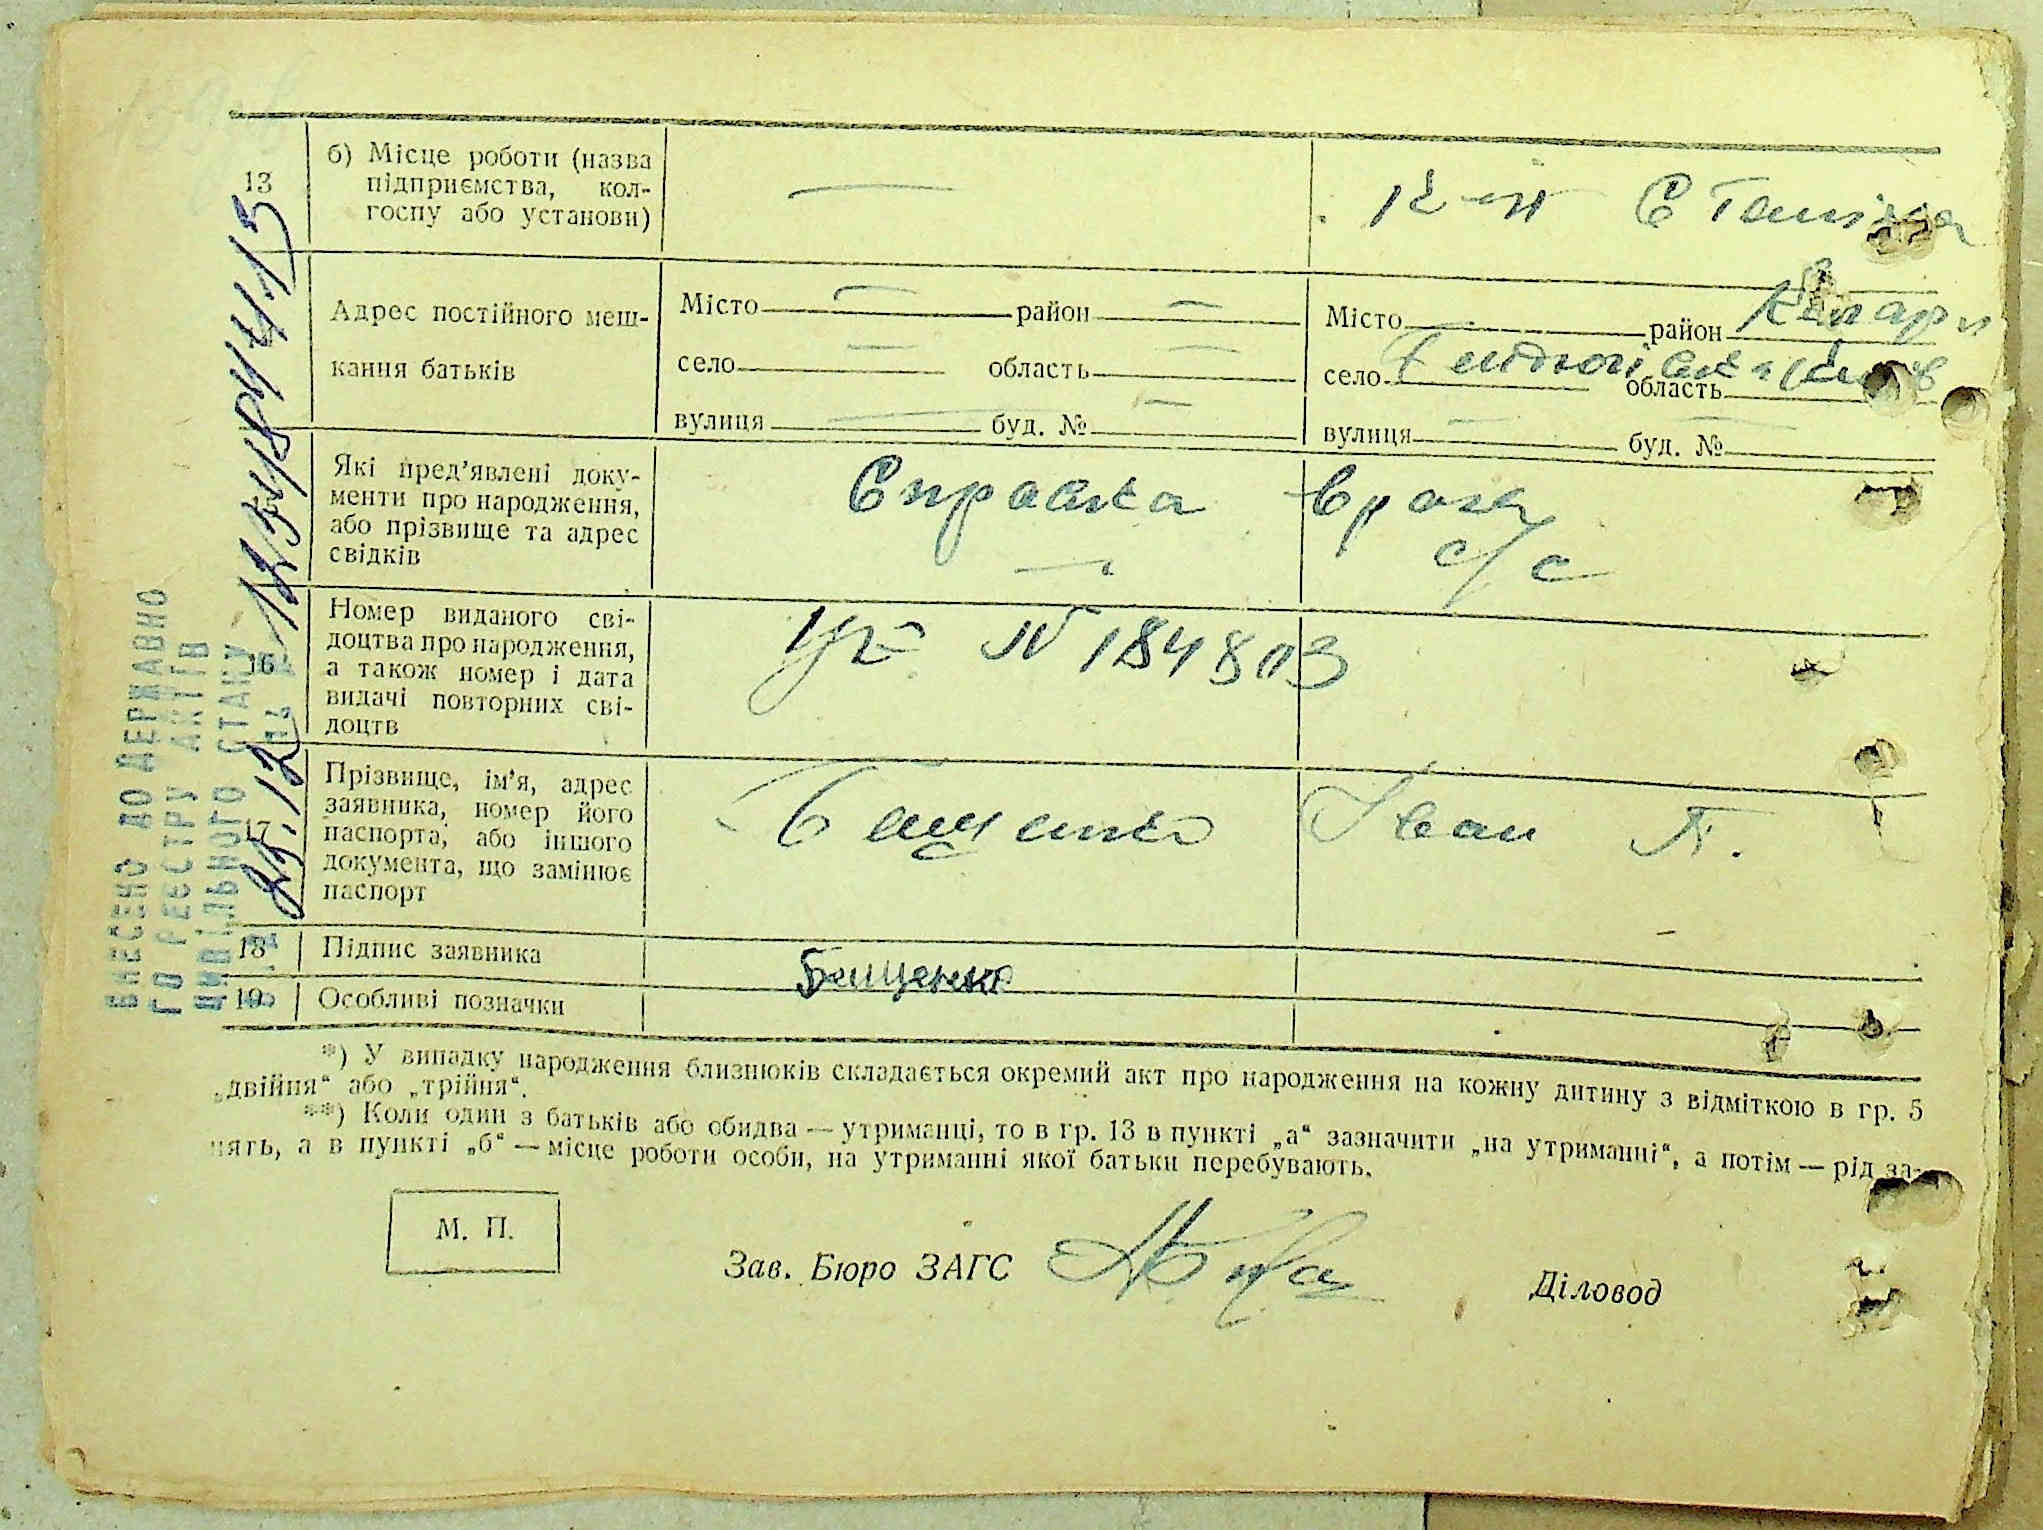 13
б) Місце роботи (назва
підприємства, кол-
госпу або установи)
—
к-п Сталіна
Адрес постійного меш-
кання батьків
Місто — район —
село — область —
вулиця — буд. № —
Місто район
село область
вулиця — буд. № —
Які пред’явлені доку-
менти про народження,
або прізвище та адрес
свідків
Справка
с/с
Номер виданого сві-
доцтва про народження,
а також номер і дата
видачі повторних сві-
доцтв
16
№ 184813
17
Прізвище, ім’я, адрес
заявника, номер його
паспорта, або іншого
документа, що замінює
паспорт
Бащенко Іван П.
18
Підпис заявника
Бащенко
19
Особливі позначки
*) У випадку народження близнюків складається окремий акт про народження на кожну дитину з відміткою в гр. 5
„двійня“ або „трійня“.
**) Коли один з батьків або обидва — утриманці, то в гр. 13 в пункті „а“ зазначити „на утриманні“, а потім — рід за-
нять, а в пункті „б“ — місце роботи особи, на утриманні якої батьки перебувають.
М. П.
Зав. Бюро ЗАГС
Діловод
ВНЕСЕНО ДО ДЕРЖАВНО
ГО РЕЄСТРУ АКТІВ
ЦИВІЛЬНОГО СТАНУ